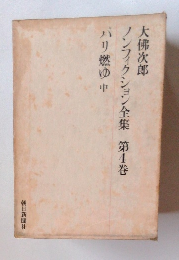 大佛次郎
ノンフィクション全集 第4巻
パリ燃ゆ 中
朝日新聞社